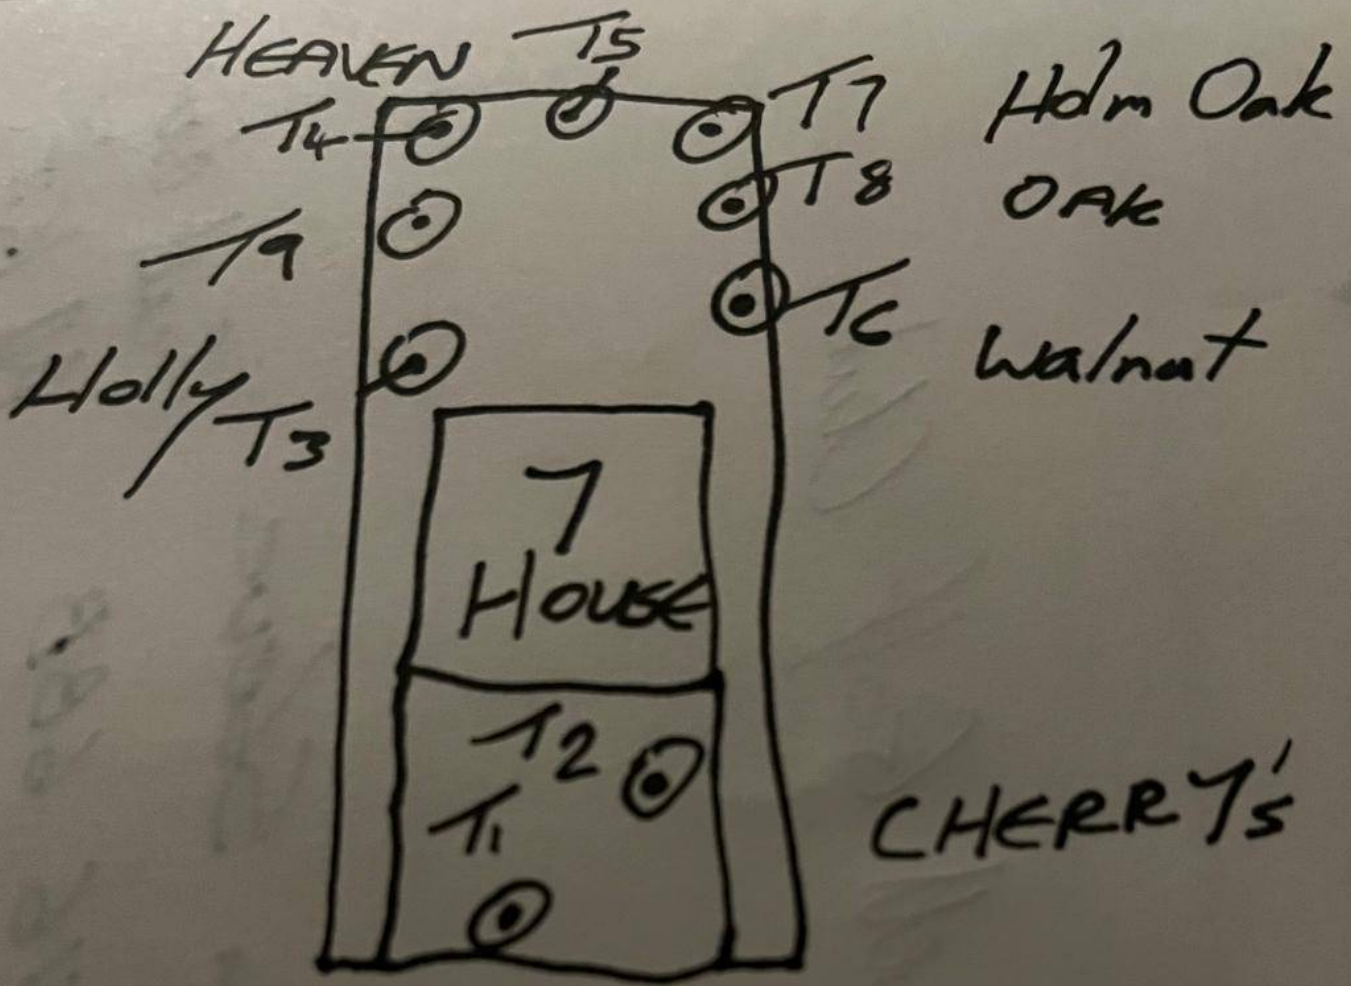 HEAVEN T5
T4 T7 Holm Oak
T8 OAK
T9
T6 Walnut
Holly/T3
7
HOUSE
T2
T1
CHERRY's